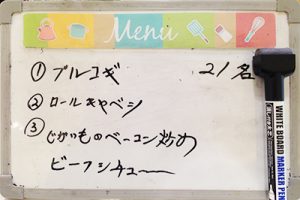 Menu
① プルコギ 21名
② ロールキャベツ
③
じゃがいものベーコン炒め
ビーフシチュー
WHITE BOARD
MARKER PEN